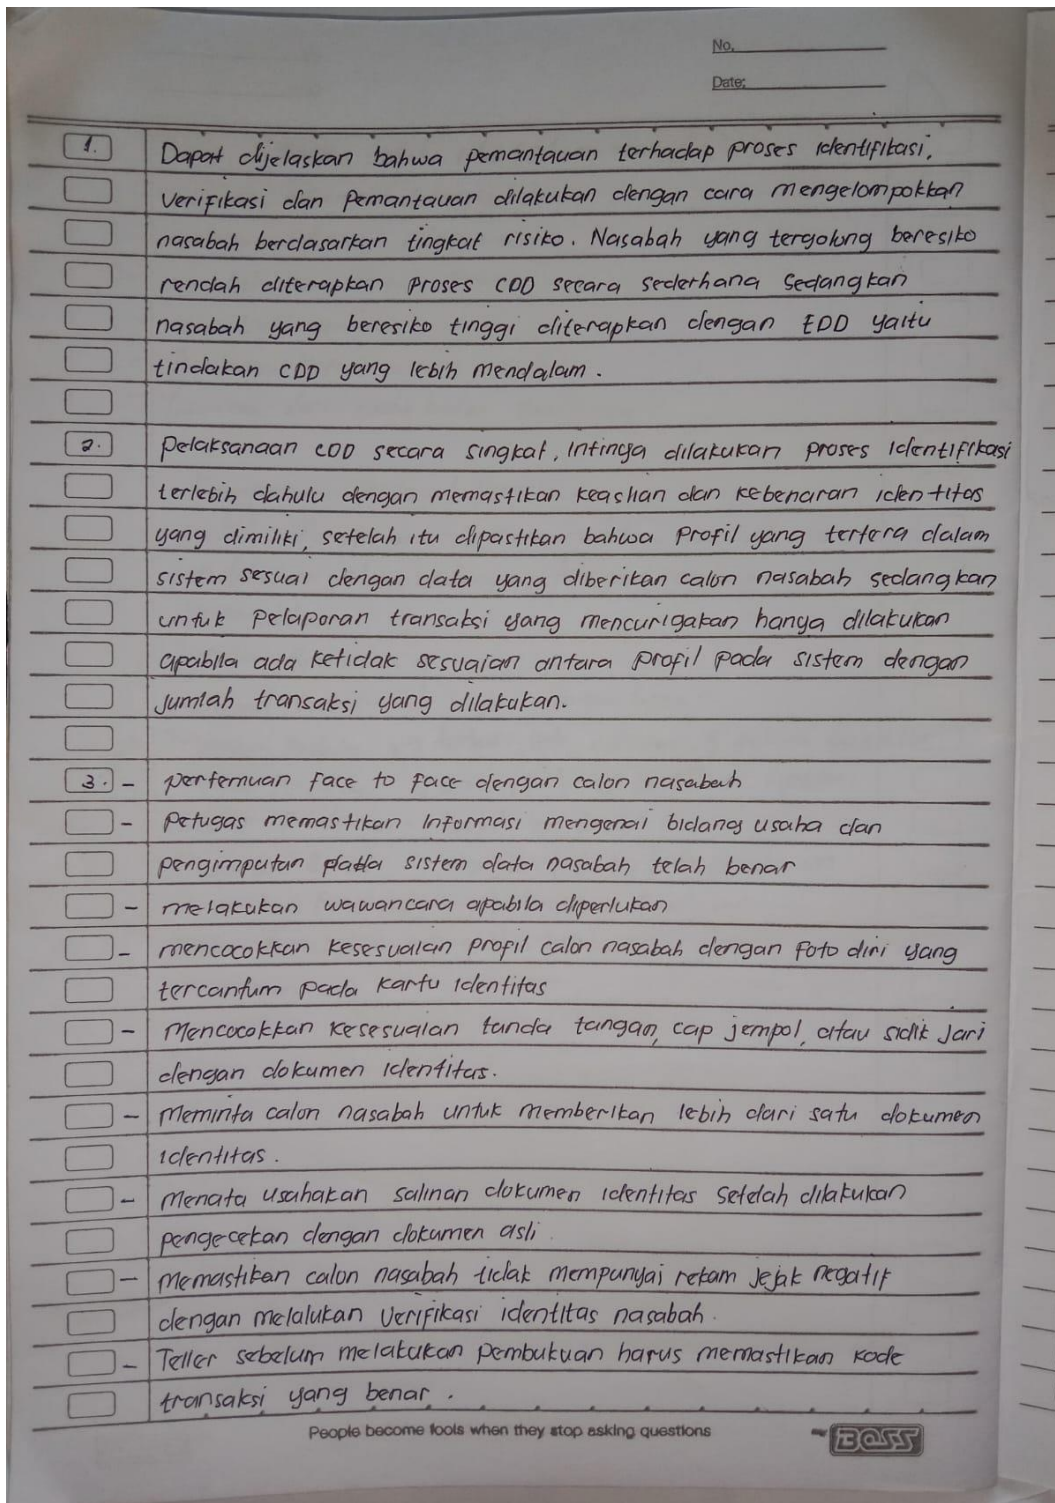 No.
Date:
1. Dapat dijelaskan bahwa pemantauan terhadap proses identifikasi,
verifikasi dan Pemantauan dilakukan dengan cara mengelompokkan
nasabah berdasarkan tingkat risiko. Nasabah yang tergolong beresiko
rendah diterapkan proses CDD secara sederhana sedangkan
nasabah yang beresiko tinggi diterapkan dengan EDD yaitu
tindakan CDD yang lebih mendalam.
2. Pelaksanaan CDD secara singkat, Intinya dilakukan proses Identifikasi
terlebih dahulu dengan memastikan keaslian dan kebenaran identitas
yang dimiliki, setelah itu dipastikan bahwa Profil yang tertera dalam
sistem sesuai dengan data yang diberikan calon nasabah sedangkan
untuk Pelaporan transaksi yang mencurigakan hanya dilakukan
apabila ada ketidak sesuaian antara profil pada sistem dengan
jumlah transaksi yang dilakukan.
3. - pertemuan face to face dengan calon nasabah
- Petugas memastikan Informasi mengenai bidang usaha dan
pengimputan pada sistem data nasabah telah benar
- melakukan wawancara apabila diperlukan
- mencocokkan kesesuaian profil calon nasabah dengan foto diri yang
tercantum pada kartu identitas
- Mencocokkan kesesuaian tanda tangan, cap jempol, atau sidik Jari
dengan dokumen identitas.
- Meminta calon nasabah untuk memberikan lebih dari satu dokumen
identitas.
- Menata usahakan salinan dokumen identitas setelah dilakukan
pengecekan dengan dokumen asli.
- Memastikan calon nasabah tidak mempunyai rekam jejak negatif
dengan melalukan Verifikasi identitas nasabah.
- Teller sebelum melakukan pembukuan harus memastikan kode
transaksi yang benar.
People become fools when they stop asking questions
BOSS